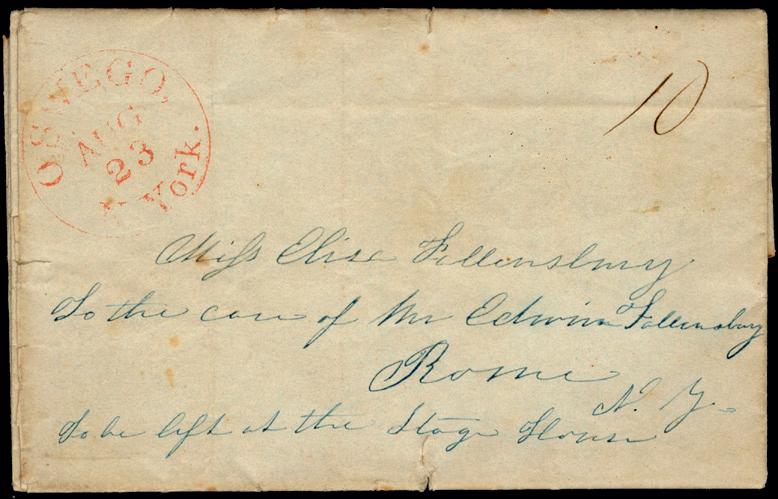 OSWEGO,
AUG
23
N York.
10
Miss Elisa Follensbury
To the care of Mr Edwin Follensbury
Rome
N. Y.
To be left at the Stage House